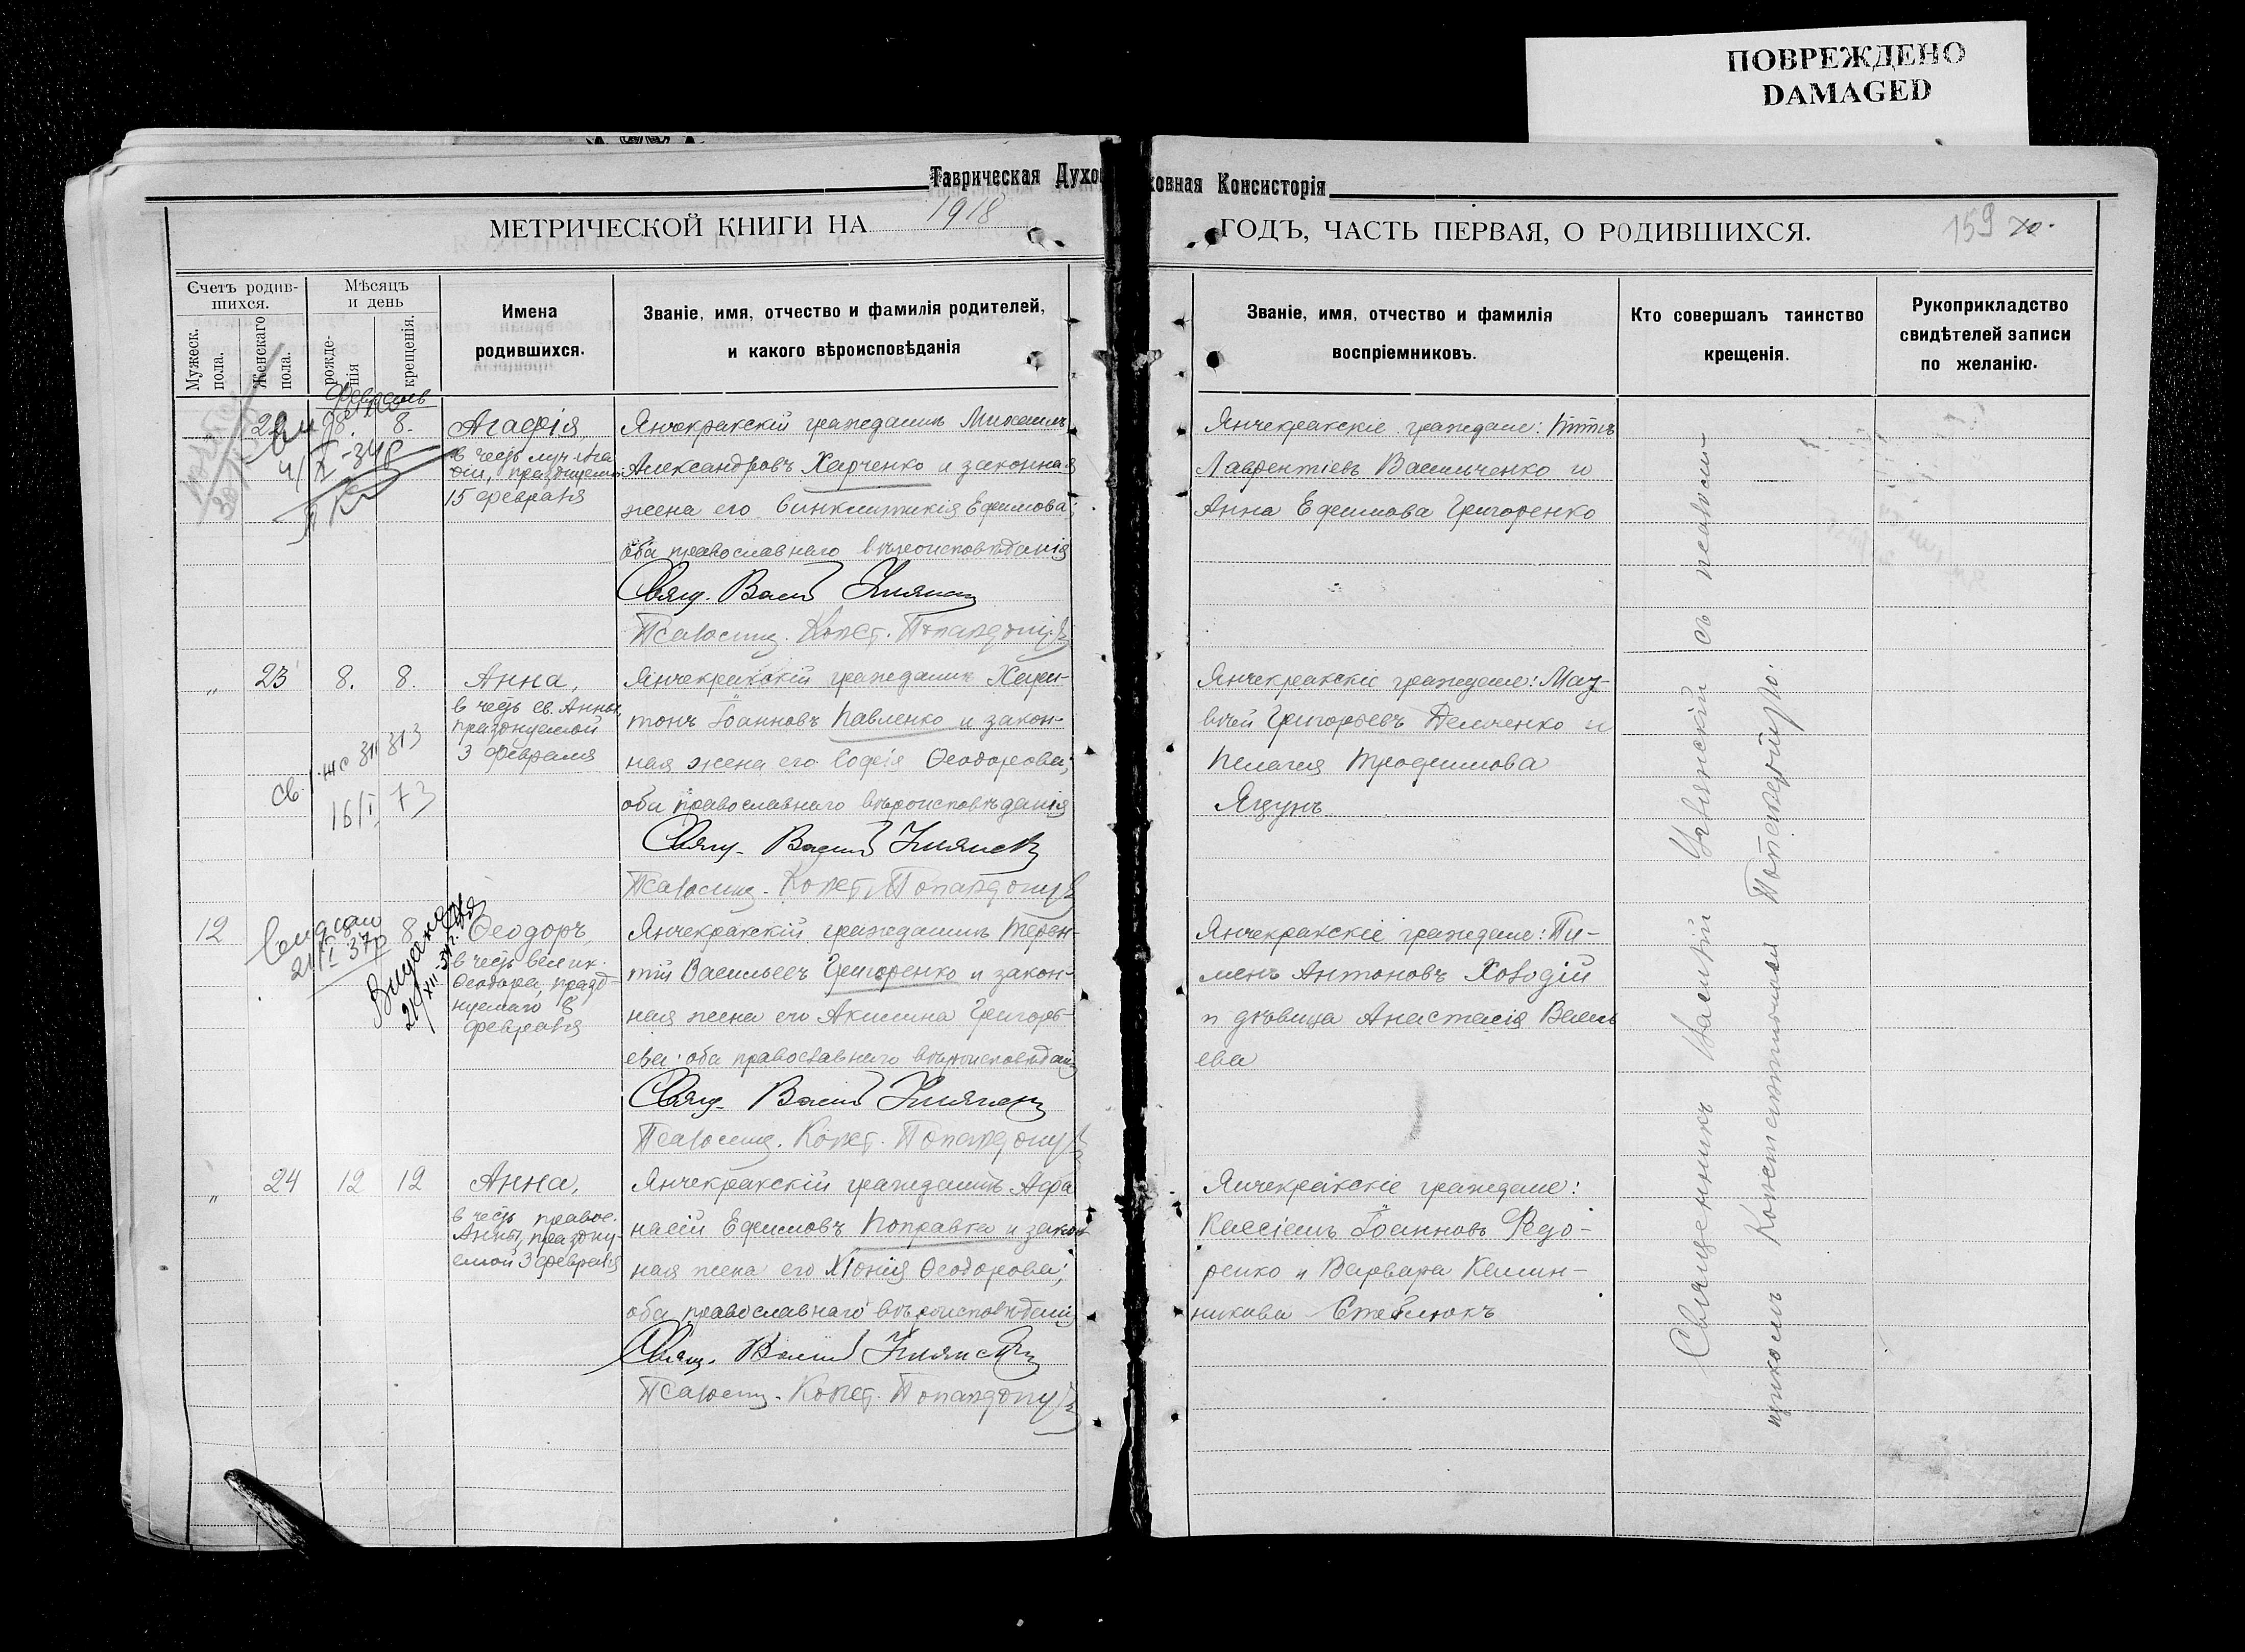 ПОВРЕЖДЕНО
DAMAGED
Таврическая Духовная Консисторія
МЕТРИЧЕСКОЙ КНИГИ НА 1918 ГОДЪ, ЧАСТЬ ПЕРВАЯ, О РОДИВШИХСЯ.
159
Счетъ родив-
шихся.
Мужеск.
пола.
Женскаго
пола.
Мѣсяцъ
и день
рожде-
нія
крещенія.
Имена
родившихся.
Званіе, имя, отчество и фамилія родителей,
и какого вѣроисповѣданія
Званіе, имя, отчество и фамилія
воспріемниковъ.
Кто совершалъ таинство
крещенія.
Рукоприкладство
свидѣтелей записи
по желанію.
Февраль
22 8.
Агафія,
15 февраля
Янчекракскій гражданинъ Михаилъ
Александровъ Харченко и законная
жена его Синклитикія Ефимова;
оба православнаго вѣроисповѣданія
Свящ. Васил
Псаломщ. Конст. Попандопуло
Янчекракскіе граждане: Титъ
Лаврентіевъ Васильченко и
Анна Ефимова Григоренко
„ 23 8. 8.
Анна,
в честь св. Анны,
празднуемой
3 февраля
Янчекракскій гражданинъ Хари-
тонъ Іоанновъ Павленко и закон-
ная жена его Софія Ѳеодорова;
оба православнаго вѣроисповѣданія
Свящ. Васил
Псаломщ. Конст. Попандопуло
Янчекракскіе граждане: Мат-
вѣй Григорьевъ Демченко и
Пелагея Трофимова
Яцунъ
16/I 73
12 8
21/I 37
Ѳеодоръ,
в честь велик.
Ѳеодора, празд-
нуемаго 8
февраля
Янчекракскій гражданинъ Терен-
тій Васильевъ Григоренко и закон-
ная жена его Акилина Григорь-
ева; оба православнаго вѣроисповѣданія
Свящ. Васил
Псаломщ. Конст. Попандопуло
Янчекракскіе граждане: Пи-
менъ Антоновъ Холодій
и дѣвица Анастасія Василь
ева
„ 24 12 12
Анна,
в честь правед.
Анны, праздну-
емой 3 февраля
Янчекракскій гражданинъ Афа
насій Ефимовъ Поправка и закон
ная жена его Хіонія Ѳеодорова;
оба православнаго вѣроисповѣданія
Свящ. Васил
Псаломщ. Конст. Попандопуло
Янчекракскіе граждане:
Кассіанъ Іоанновъ Федо-
ренко и Варвара Калин-
никова Стеблюкъ
Священникъ Василій съ псалом-
щикомъ Константиномъ Попандопуло.